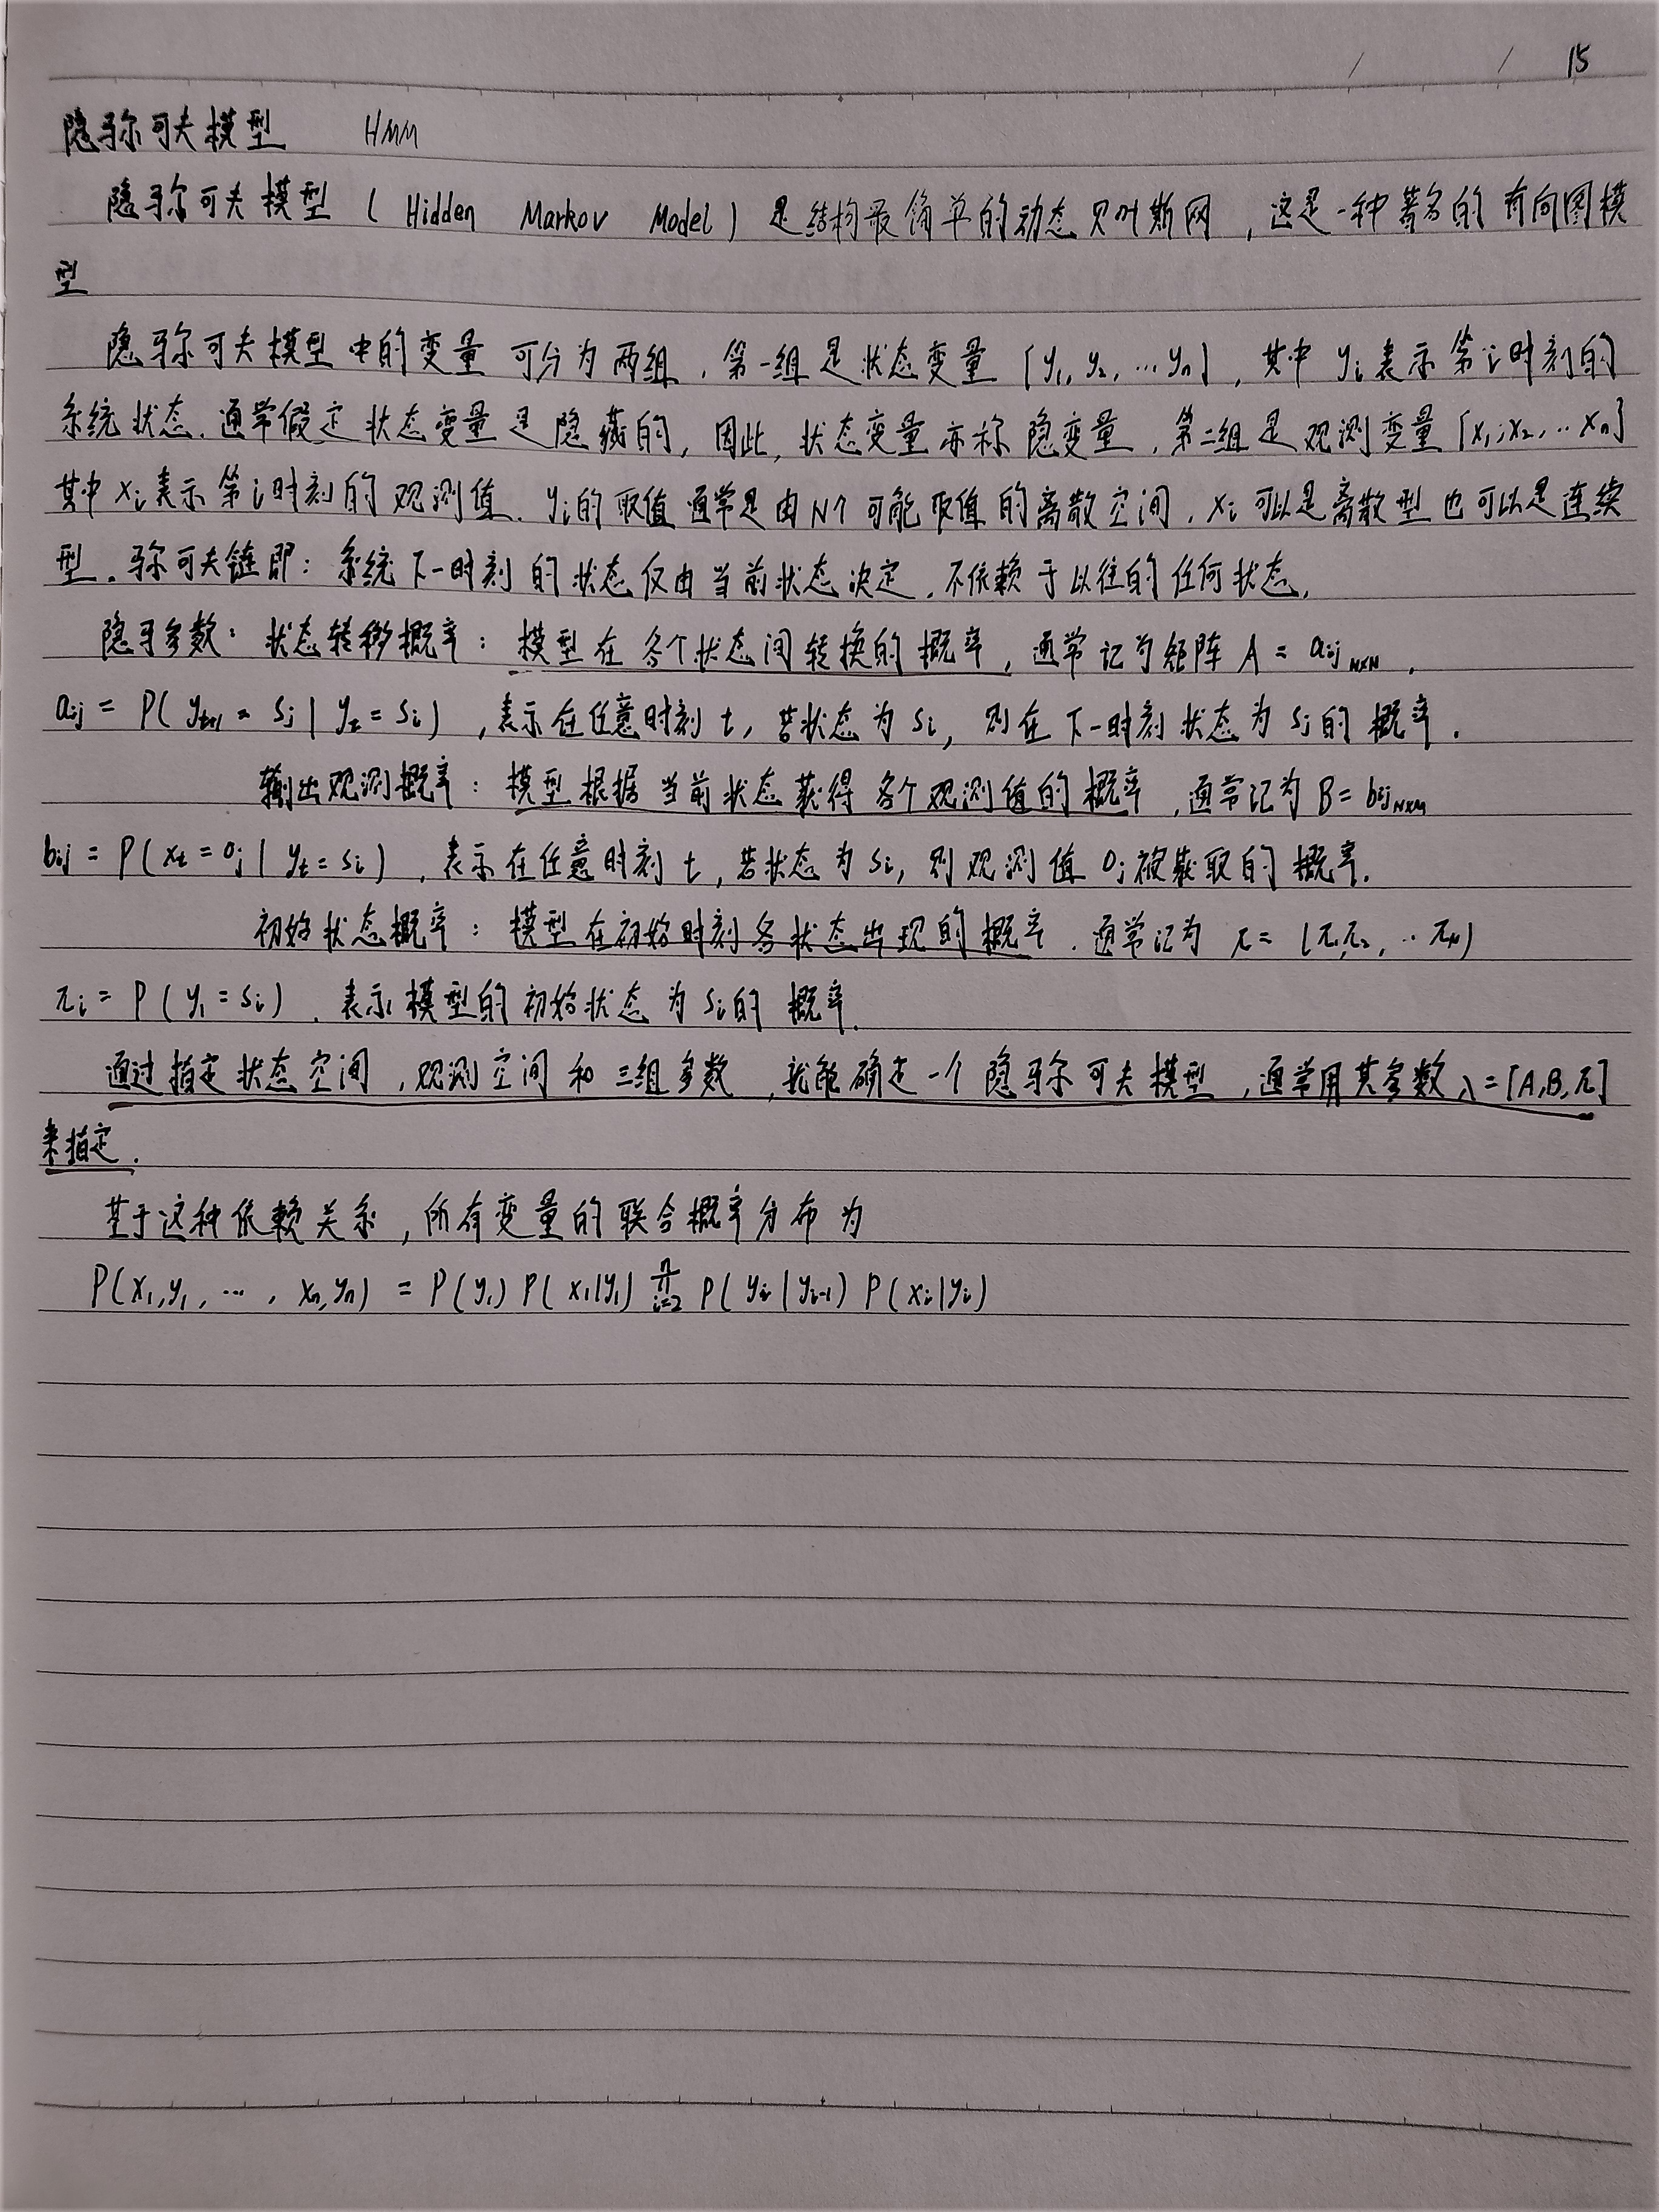 15
隐马尔可夫模型 HMM
隐马尔可夫模型 (Hidden Markov Model) 是结构最简单的动态贝叶斯网，这是一种著名的有向图模
型
隐马尔可夫模型中的变量可分为两组．第一组是状态变量 [y₁, y₂, …yₙ]，其中 yᵢ 表示第i时刻的
系统状态．通常假定状态变量是隐藏的，因此，状态变量亦称隐变量．第二组是观测变量[x₁, x₂, ‥xₙ]
其中 xᵢ 表示第i时刻的观测值．yᵢ的取值通常是由N个可能取值的离散空间．xᵢ 可以是离散型也可以是连续
型．马尔可夫链即：系统下一时刻的状态仅由当前状态决定．不依赖于以往的任何状态．
隐马参数：状态转移概率：模型在各个状态间转换的概率，通常记为矩阵 A = aᵢⱼ N×N ．
aᵢⱼ = P( yₜ₊₁ = sⱼ | yₜ = sᵢ) ，表示在任意时刻 t，若状态为 sᵢ，则在下一时刻状态为 sⱼ的概率．
输出观测概率：模型根据当前状态获得各个观测值的概率，通常记为 B = bᵢⱼ N×M
bᵢⱼ = P( xₜ = oⱼ | yₜ = sᵢ) ，表示在任意时刻 t，若状态为 sᵢ，则观测值 oⱼ被获取的概率．
初始状态概率：模型在初始时刻各状态出现的概率．通常记为 π = (π₁,π₂, ‥ πN)
πᵢ = P ( y₁ = sᵢ) ．表示模型的初始状态为 sᵢ的概率．
通过指定状态空间，观测空间和三组参数，就能确定一个隐马尔可夫模型，通常用其参数 λ = [A,B,π]
来指定．
基于这种依赖关系，所有变量的联合概率分布为
P(x₁,y₁, … , xₙ,yₙ) = P(y₁) P( x₁|y₁) ∏ⁿᵢ₌₂ P( yᵢ | yᵢ₋₁) P( xᵢ|yᵢ)